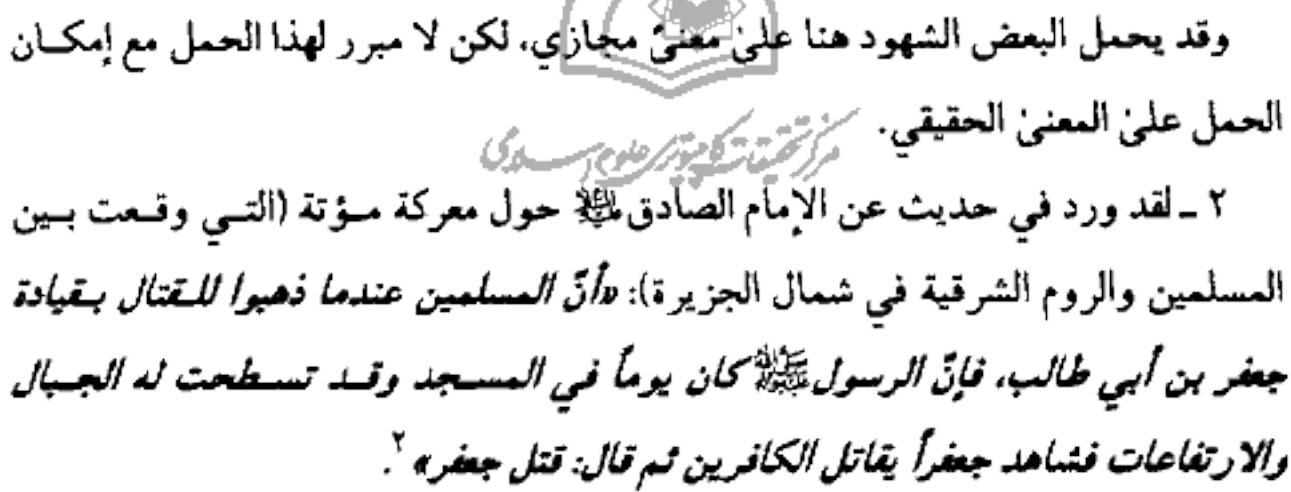 وقد يحمل البعض الشهود هنا علىٰ معنىً مجازي، لكن لا مبرر لهذا الحمل مع إمكان
الحمل علىٰ المعنىٰ الحقيقي.
مركز تحقيقات كامپيوترى علوم اسلامى
٢ ـ لقد ورد في حديث عن الإمام الصادق عليه السلام حول معركة مؤتة (التي وقعت بين
المسلمين والروم الشرقية في شمال الجزيرة): «أنّ المسلمين عندما ذهبوا للقتال بقيادة
جعفر بن أبي طالب، فإنّ الرسول ﷺ كان يوماً في المسجد وقد تسطحت له الجبال
والارتفاعات فشاهد جعفراً يقاتل الكافرين ثم قال: قتل جعفر» ٢.